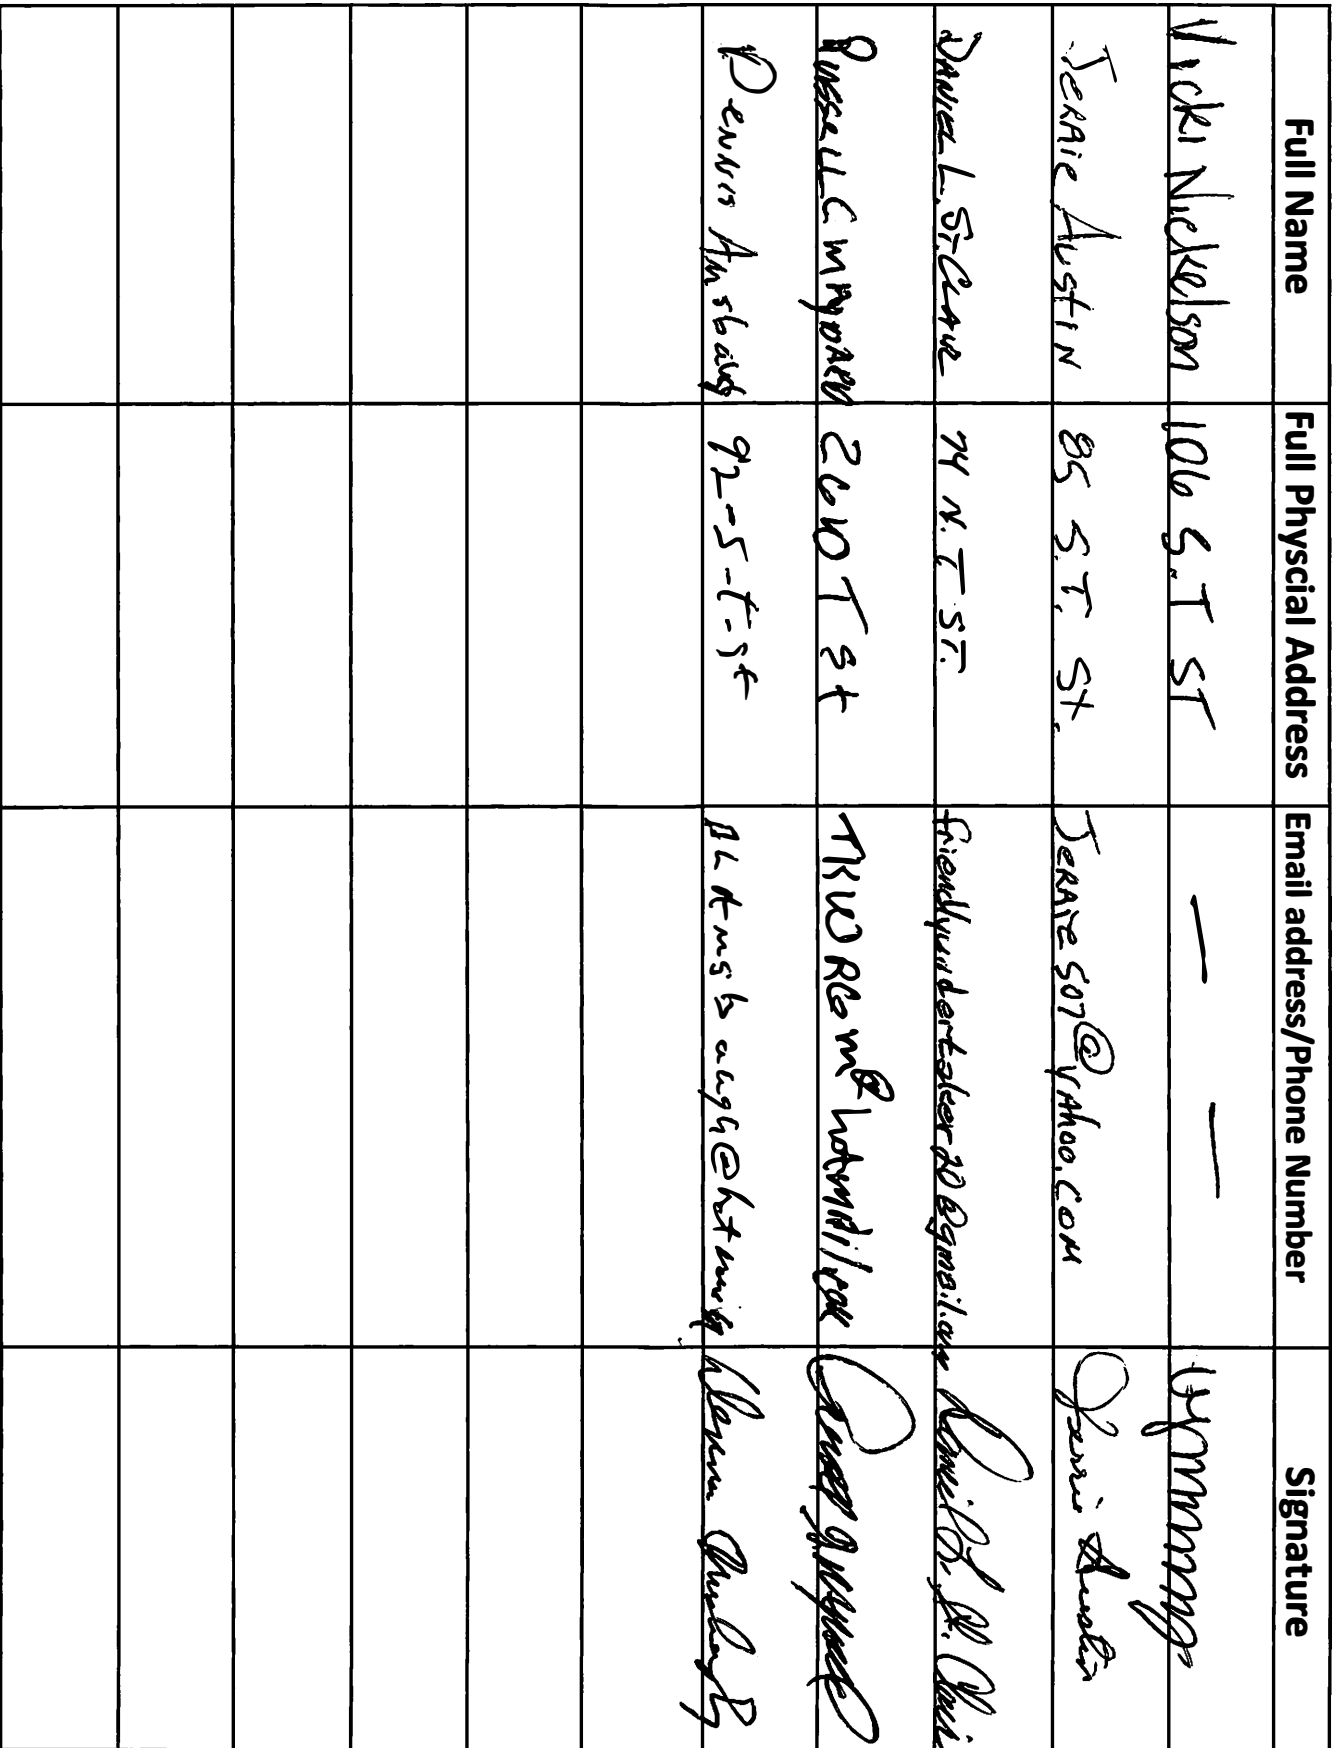 Full Name Full Physcial Address Email address/Phone Number Signature
Vicki Nickelson 106 S.T ST — —
Jeraie Austin 85 S.T. St. Jeraie507@yahoo.com Jerrie Austin
Daniel L. St. Clair 74 N. T ST. friendlyundertaker20@gmail.com Daniel L. St. Clair
Russell C Maynard T St hotmail.com
Dennis Amsbaugh 92-S-t-st Amsbaugh@hotmail Dennis Amsbaugh